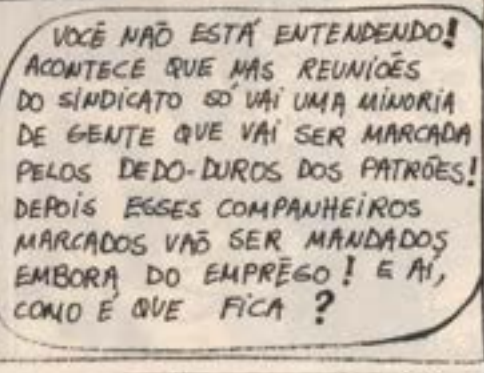 VOCÊ NÃO ESTÁ ENTENDENDO!
ACONTECE QUE NAS REUNIÕES
DO SINDICATO SÓ VAI UMA MINORIA
DE GENTE QUE VAI SER MARCADA
PELOS DEDO-DUROS DOS PATRÕES!
DEPOIS ESSES COMPANHEIROS
MARCADOS VÃO SER MANDADOS
EMBORA DO EMPRÊGO! E AÍ,
COMO É QUE FICA?